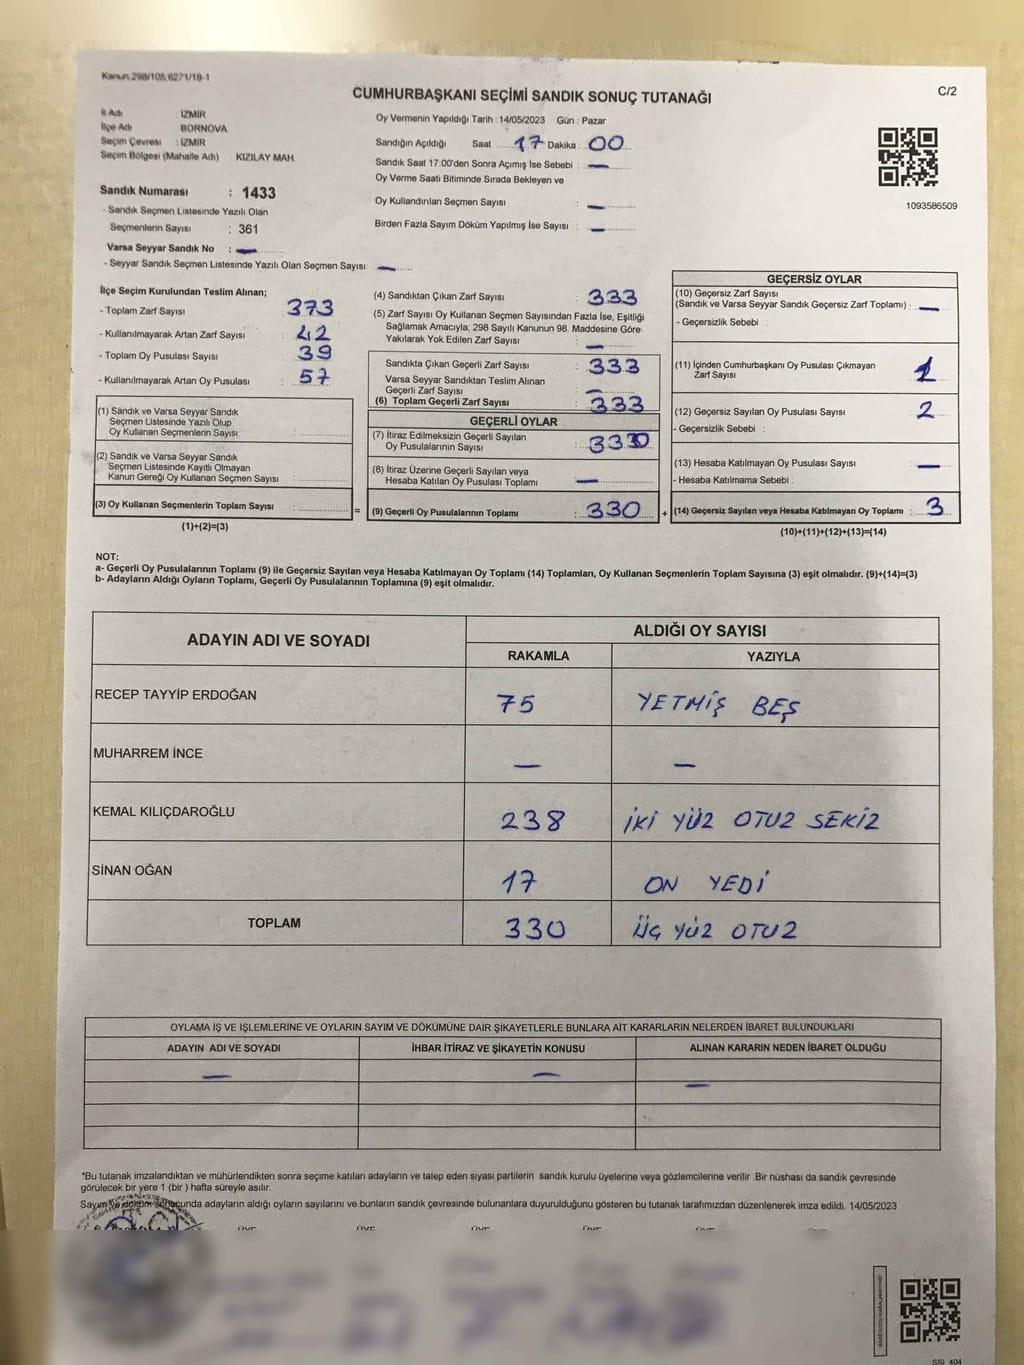 Kanun.298/105.6271/18-1
C/2
CUMHURBAŞKANI SEÇİMİ SANDIK SONUÇ TUTANAĞI
İl Adı : İZMİR
İlçe Adı : BORNOVA
Seçim Çevresi : İZMİR
Seçim Bölgesi (Mahalle Adı) KIZILAY MAH.
Sandık Numarası : 1433
- Sandık Seçmen Listesinde Yazılı Olan
Seçmenlerin Sayısı : 361
Varsa Seyyar Sandık No : —
- Seyyar Sandık Seçmen Listesinde Yazılı Olan Seçmen Sayısı: —
Oy Vermenin Yapıldığı Tarih : 14/05/2023 Gün : Pazar
Sandığın Açıldığı Saat 17 Dakika : 00
Sandık Saat 17:00'den Sonra Açımış İse Sebebi : —
Oy Verme Saati Bitiminde Sırada Bekleyen ve
Oy Kullandırılan Seçmen Sayısı : —
Birden Fazla Sayım Döküm Yapılmış İse Sayısı : —
1093586509
İlçe Seçim Kurulundan Teslim Alınan;
- Toplam Zarf Sayısı : 373
- Kullanılmayarak Artan Zarf Sayısı : 42
- Toplam Oy Pusulası Sayısı : 39
- Kullanılmayarak Artan Oy Pusulası : 57
(1) Sandık ve Varsa Seyyar Sandık
Seçmen Listesinde Yazılı Olup
Oy Kullanan Seçmenlerin Sayısı :
(2) Sandık ve Varsa Seyyar Sandık
Seçmen Listesinde Kayıtlı Olmayan
Kanun Gereği Oy Kullanan Seçmen Sayısı :
(3) Oy Kullanan Seçmenlerin Toplam Sayısı : =
(1)+(2)=(3)
(4) Sandıktan Çıkan Zarf Sayısı : 333
(5) Zarf Sayısı Oy Kullanan Seçmen Sayısından Fazla İse, Eşitliği
Sağlamak Amacıyla; 298 Sayılı Kanunun 98. Maddesine Göre
Yakılarak Yok Edilen Zarf Sayısı : —
Sandıkta Çıkan Geçerli Zarf Sayısı : 333
Varsa Seyyar Sandıktan Teslim Alınan
Geçerli Zarf Sayısı : —
(6) Toplam Geçerli Zarf Sayısı : 333
GEÇERLİ OYLAR
(7) İtiraz Edilmeksizin Geçerli Sayılan
Oy Pusulalarının Sayısı : 330
(8) İtiraz Üzerine Geçerli Sayılan veya
Hesaba Katılan Oy Pusulası Toplamı : —
(9) Geçerli Oy Pusulalarının Toplamı : 330 +
GEÇERSİZ OYLAR
(10) Geçersiz Zarf Sayısı
(Sandık ve Varsa Seyyar Sandık Geçersiz Zarf Toplamı) : —
- Geçersizlik Sebebi :
(11) İçinden Cumhurbaşkanı Oy Pusulası Çıkmayan
Zarf Sayısı : 1
(12) Geçersiz Sayılan Oy Pusulası Sayısı : 2
- Geçersizlik Sebebi :
(13) Hesaba Katılmayan Oy Pusulası Sayısı : —
- Hesaba Katılmama Sebebi :
(14) Geçersiz Sayılan veya Hesaba Katılmayan Oy Toplamı : 3
(10)+(11)+(12)+(13)=(14)
NOT:
a- Geçerli Oy Pusulalarının Toplamı (9) ile Geçersiz Sayılan veya Hesaba Katılmayan Oy Toplamı (14) Toplamları, Oy Kullanan Seçmenlerin Toplam Sayısına (3) eşit olmalıdır. (9)+(14)=(3)
b- Adayların Aldığı Oyların Toplamı, Geçerli Oy Pusulalarının Toplamına (9) eşit olmalıdır.
ADAYIN ADI VE SOYADI
ALDIĞI OY SAYISI
RAKAMLA YAZIYLA
RECEP TAYYİP ERDOĞAN 75 YETMİŞ BEŞ
MUHARREM İNCE — —
KEMAL KILIÇDAROĞLU 238 İKİ YÜZ OTUZ SEKİZ
SİNAN OĞAN 17 ON YEDİ
TOPLAM 330 ÜÇ YÜZ OTUZ
OYLAMA İŞ VE İŞLEMLERİNE VE OYLARIN SAYIM VE DÖKÜMÜNE DAİR ŞİKAYETLERLE BUNLARA AİT KARARLARIN NELERDEN İBARET BULUNDUKLARI
ADAYIN ADI VE SOYADI İHBAR İTİRAZ VE ŞİKAYETİN KONUSU ALINAN KARARIN NEDEN İBARET OLDUĞU
— — —
*Bu tutanak imzalandıktan ve mühürlendikten sonra seçime katılan adayların ve talep eden siyasi partilerin sandık kurulu üyelerine veya gözlemcilerine verilir .Bir nüshası da sandık çevresinde
görülecek bir yere 1 (bir ) hafta süreyle asılır.
Sayım ve döküm sonucunda adayların aldığı oyların sayılarını ve bunların sandık çevresinde bulunanlara duyurulduğunu gösteren bu tutanak tarafımızdan düzenlenerek imza edildi. 14/05/2023